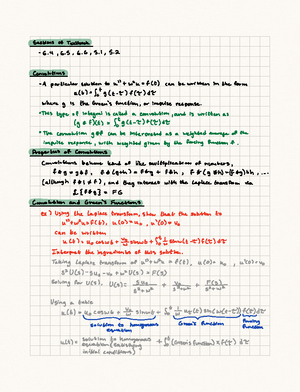 Sections of Textbook
- 6.4, 6.5, 6.6, 5.1, 5.2
Convolutions
- A particular solution to u'' + ω²u = f(t) can be written in the form
u(t) = ∫₀ᵗ g(t-τ) f(τ) dτ
where g is the Green's function, or impulse response.
- This type of integral is called a convolution, and is written as
(g * f)(t) = ∫₀ᵗ g(t-τ) f(τ) dτ
- The convolution g*f can be interpreted as a weighted average of the
impulse response, with weighted given by the forcing function f.
Properties of Convolutions
Convolutions behave kind of like multiplication of numbers,
f*g = g*f, f*(g+h) = f*g + f*h, f*(g*h) = (f*g)*h, ...
(although f*1 ≠ f), and they interact with the Laplace transform via
L[f*g] = FG
Convolution and Green's Functions
ex) Using the Laplace transform, show that the solution to
u'' + ω²u = f(t), u(0) = u₀, u'(0) = v₀
can be written
u(t) = u₀ cos ωt + v₀/ω sin ωt + ∫₀ᵗ 1/ω sin ω(t-τ) f(τ) dτ
Interpret the ingredients of this solution.
Taking Laplace transform of u'' + ω²u = f(t), u(0) = u₀, u'(0) = v₀
s²U(s) - su₀ - v₀ + ω²U(s) = F(s)
Solving for U(s), U(s) = su₀/(s²+ω²) + v₀/(s²+ω²) + F(s)/(s²+ω²)
Using a table
u(t) = u₀ cos ωt + v₀/ω sin ωt + ∫₀ᵗ 1/ω sin(ω(t-τ)) f(τ) dτ
solution to homogenous equation Green's function forcing function
u(t) = solution to homogenous equation (satisfying initial conditions) + ∫₀ᵗ (Green's function) × f(τ) dτ